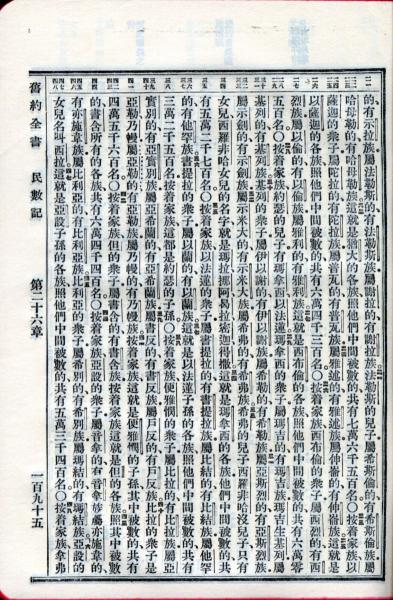 的有示拉族屬法勒斯的有法勒斯族屬謝拉的有謝拉族法勒斯的兒子屬希斯倫的有希斯倫族屬
哈母勒的有哈母勒族這就是猶大的各族照他們中間被數的共有七萬六千五百名〇按着家族以
薩迦的衆子屬陀拉的有陀拉族屬普瓦的有普瓦族屬雅述的有雅述族屬伸崙的有伸崙族這就是
以薩迦的各族照他們中間被數的共有六萬四千三百名〇按着家族西布倫的衆子屬西烈的有西
烈族屬以倫的有以倫族屬雅利的有雅利族這就是西布倫的各族照他們中間被數的共有六萬零
五百名〇按着家族約瑟的兒子有瑪拿西以法蓮瑪拿西的衆子屬瑪吉的有瑪吉族瑪吉生基列屬
基列的有基列族基列的衆子屬伊以謝的有伊以謝族屬希勒的有希勒族屬亞斯烈的有亞斯烈族
屬示劍的有示劍族屬示米大的有示米大族屬希弗的有希弗族希弗的兒子西羅非哈沒兒子只有
女兒西羅非哈女兒的名字就是瑪拉挪阿曷拉密迦得撒這就是瑪拿西的各族他們中間被數的共
有五萬二千七百名〇按着家族以法蓮的衆子屬書提拉的有書提拉族屬比結的有比結族屬他罕
的有他罕族書提拉的衆子屬以蘭的有以蘭族這就是以法蓮子孫的各族照他們中間被數的共有
三萬二千五百名按着家族這都是約瑟的子孫〇按着家族便雅憫的衆子屬比拉的有比拉族屬亞
實別的有亞實別族屬亞希蘭的有亞希蘭族屬書反的有書反族屬戶反的有戶反族比拉的衆子是
亞勒乃幔屬亞勒的有亞勒族屬乃幔的有乃幔族按着家族這就是便雅憫的子孫其中被數的共有
四萬五千六百名〇按着家族但的衆子屬書含的有書含族按着家族這就是但的各族照其中被數
的書含所有的各族共有六萬四千四百名〇按着家族亞設的衆子屬音拿的有音拿族屬亦施韋的
有亦施韋族屬比利亞的有比利亞族比利亞的衆子屬希別的有希別族屬瑪結的有瑪結族亞設的
女兒名叫西拉這就是亞設子孫的各族照他們中間被數的共有五萬三千四百名〇按着家族拿弗
舊約全書 民數記 第二十六章 一百九十五